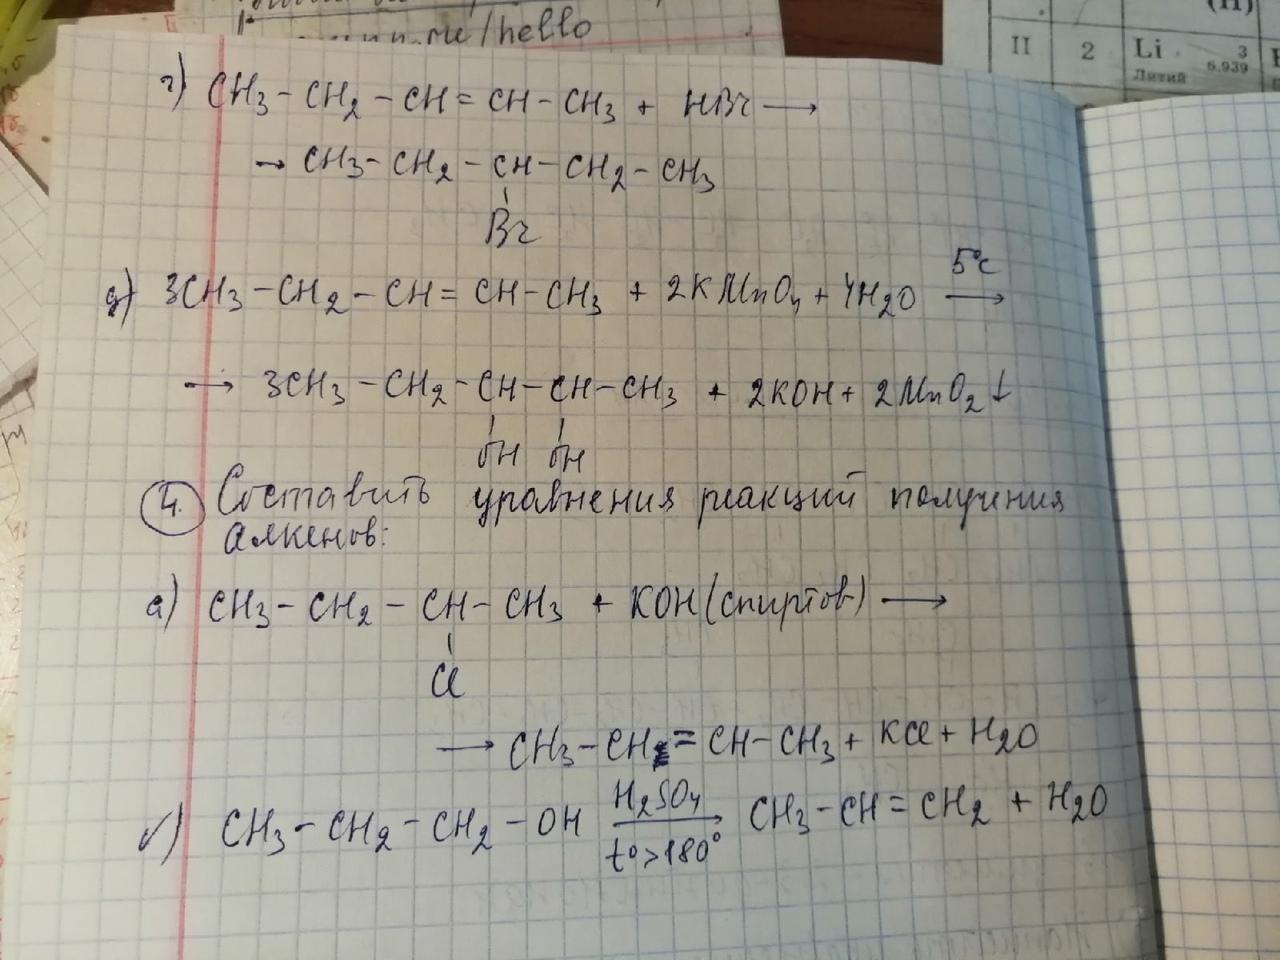 nn.me/hello
(H)
II 2 Li 3
6.939
Литий
г) CH3-CH2-CH=CH-CH3 + HBr ⟶
→ CH3-CH2-CH-CH2-CH3
Br
д) 3CH3-CH2-CH=CH-CH3 + 2KMnO4 + 4H2O ⟶
5°C
⟶ 3CH3-CH2-CH-CH-CH3 + 2KOH + 2MnO2↓
OH OH
4. Составить уравнения реакций получения
алкенов:
а) CH3-CH2-CH-CH3 + KOH(спиртов) ⟶
Cl
⟶ CH3-CH=CH-CH3 + KCl + H2O
H2SO4
б) CH3-CH2-CH2-OH ⟶ CH3-CH=CH2 + H2O
t°>180°